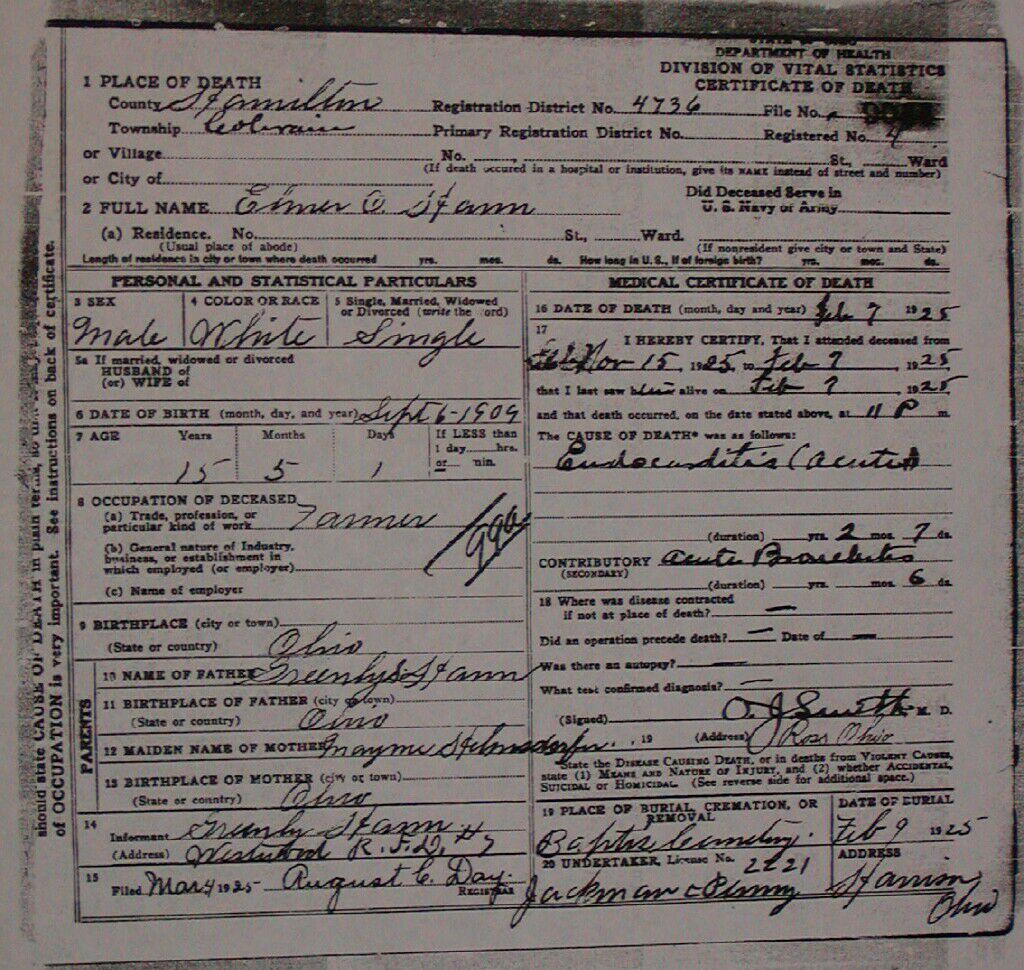 DEPARTMENT OF HEALTH
DIVISION OF VITAL STATISTICS
CERTIFICATE OF DEATH
1 PLACE OF DEATH
County Hamilton Registration District No. 4736 File No.
Township Colerain Primary Registration District No. Registered No. 4
or Village No. St., Ward
(If death occured in a hospital or institution, give its NAME instead of street and number)
or City of
Did Deceased Serve in
U. S. Navy or Army
2 FULL NAME Elmer O. Hann
(a) Residence. No. St., Ward.
(Usual place of abode) (If nonresident give city or town and State)
Length of residence in city or town where death occurred yrs. mos. ds. How long in U. S., if of foreign birth? yrs. mos. ds.
PERSONAL AND STATISTICAL PARTICULARS
3 SEX 4 COLOR OR RACE 5 Single, Married, Widowed
or Divorced (write the word)
Male White Single
5a If married, widowed or divorced
HUSBAND of
(or) WIFE of
6 DATE OF BIRTH (month, day, and year) Sept 6-1909
7 AGE Years Months Days If LESS than
1 day hrs.
or min.
15 5 1
8 OCCUPATION OF DECEASED
(a) Trade, profession, or
particular kind of work Farmer
(b) General nature of Industry,
business, or establishment in
which employed (or employer)
(c) Name of employer
9 BIRTHPLACE (city or town)
(State or country) Ohio
PARENTS
10 NAME OF FATHER Greenly Hann
11 BIRTHPLACE OF FATHER (city or town)
(State or country) Ohio
12 MAIDEN NAME OF MOTHER Mayme
13 BIRTHPLACE OF MOTHER (city or town)
(State or country) Ohio
14
Informant Greenly Hann
(Address) R.F.D.
15
Filed Mar 4 1925 August C. Day
REGISTRAR
MEDICAL CERTIFICATE OF DEATH
16 DATE OF DEATH (month, day and year) Feb 7 1925
17
I HEREBY CERTIFY, That I attended deceased from
Nov 15, 1925, to Feb 7, 1925
that I last saw him alive on Feb 7, 1925
and that death occurred, on the date stated above, at 11 P m.
The CAUSE OF DEATH* was as follows:
Endocarditis (acute)
(duration) yrs. 2 mos. 7 ds.
CONTRIBUTORY Acute Bronchitis
(SECONDARY)
(duration) yrs. mos. 6 ds.
18 Where was disease contracted
if not at place of death? —
Did an operation precede death? — Date of —
Was there an autopsy? —
What test confirmed diagnosis? —
(Signed) O. J. Smith M. D.
, 19 (Address) Ross Ohio
State the DISEASE CAUSING DEATH, or in deaths from VIOLENT CAUSES,
state (1) MEANS AND NATURE OF INJURY, and (2) whether ACCIDENTAL,
SUICIDAL or HOMICIDAL. (See reverse side for additional space.)
19 PLACE OF BURIAL, CREMATION, OR
REMOVAL
DATE OF BURIAL
Baptis Cemetery. Feb 9 1925
20 UNDERTAKER, License No. 2221
ADDRESS
Jackman Harrison
Ohio
should state CAUSE OF DEATH in plain terms, so
of OCCUPATION is very important. See instructions on back of certificate.